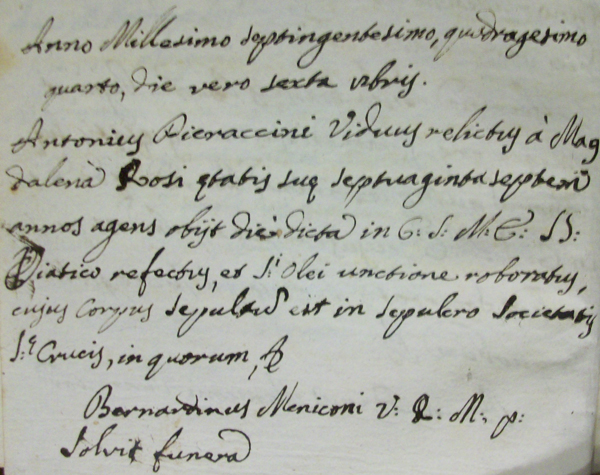 Anno Millesimo septingentesimo, quadragesimo
quarto, die vero sexta xbris.
Antonius Pieraccini Viduus relictus à Mag
dalena Rosi ętatis suę septuaginta septem
annos agens obijt die dicta in C: S: M: E: SS:
Viatico refectus, et S:i Olei unctione roboratus,
cujus Corpus sepultũ est in sepulcro Societatis
S:ę Crucis, in quorum,
Bernardinus Meniconi V: R: M: p:
Solvit funera